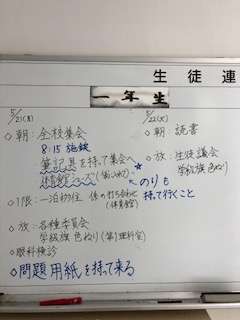 生徒連
一年生
5/21(月)
◇朝:全校集会
8:15 施錠
筆記具を持て集会へ
体育館シューズ
のりも
持て行くこと
◇1限:一泊物住 係の打ち合わせ
(体育館)
◇放:各種委員会
学級旗色ぬり(第1理科室)
◇眼科検診
◇問題用紙を持って来る
5/22(火)
◇朝 読書
◇放:生徒議会
学級旗色ぬり